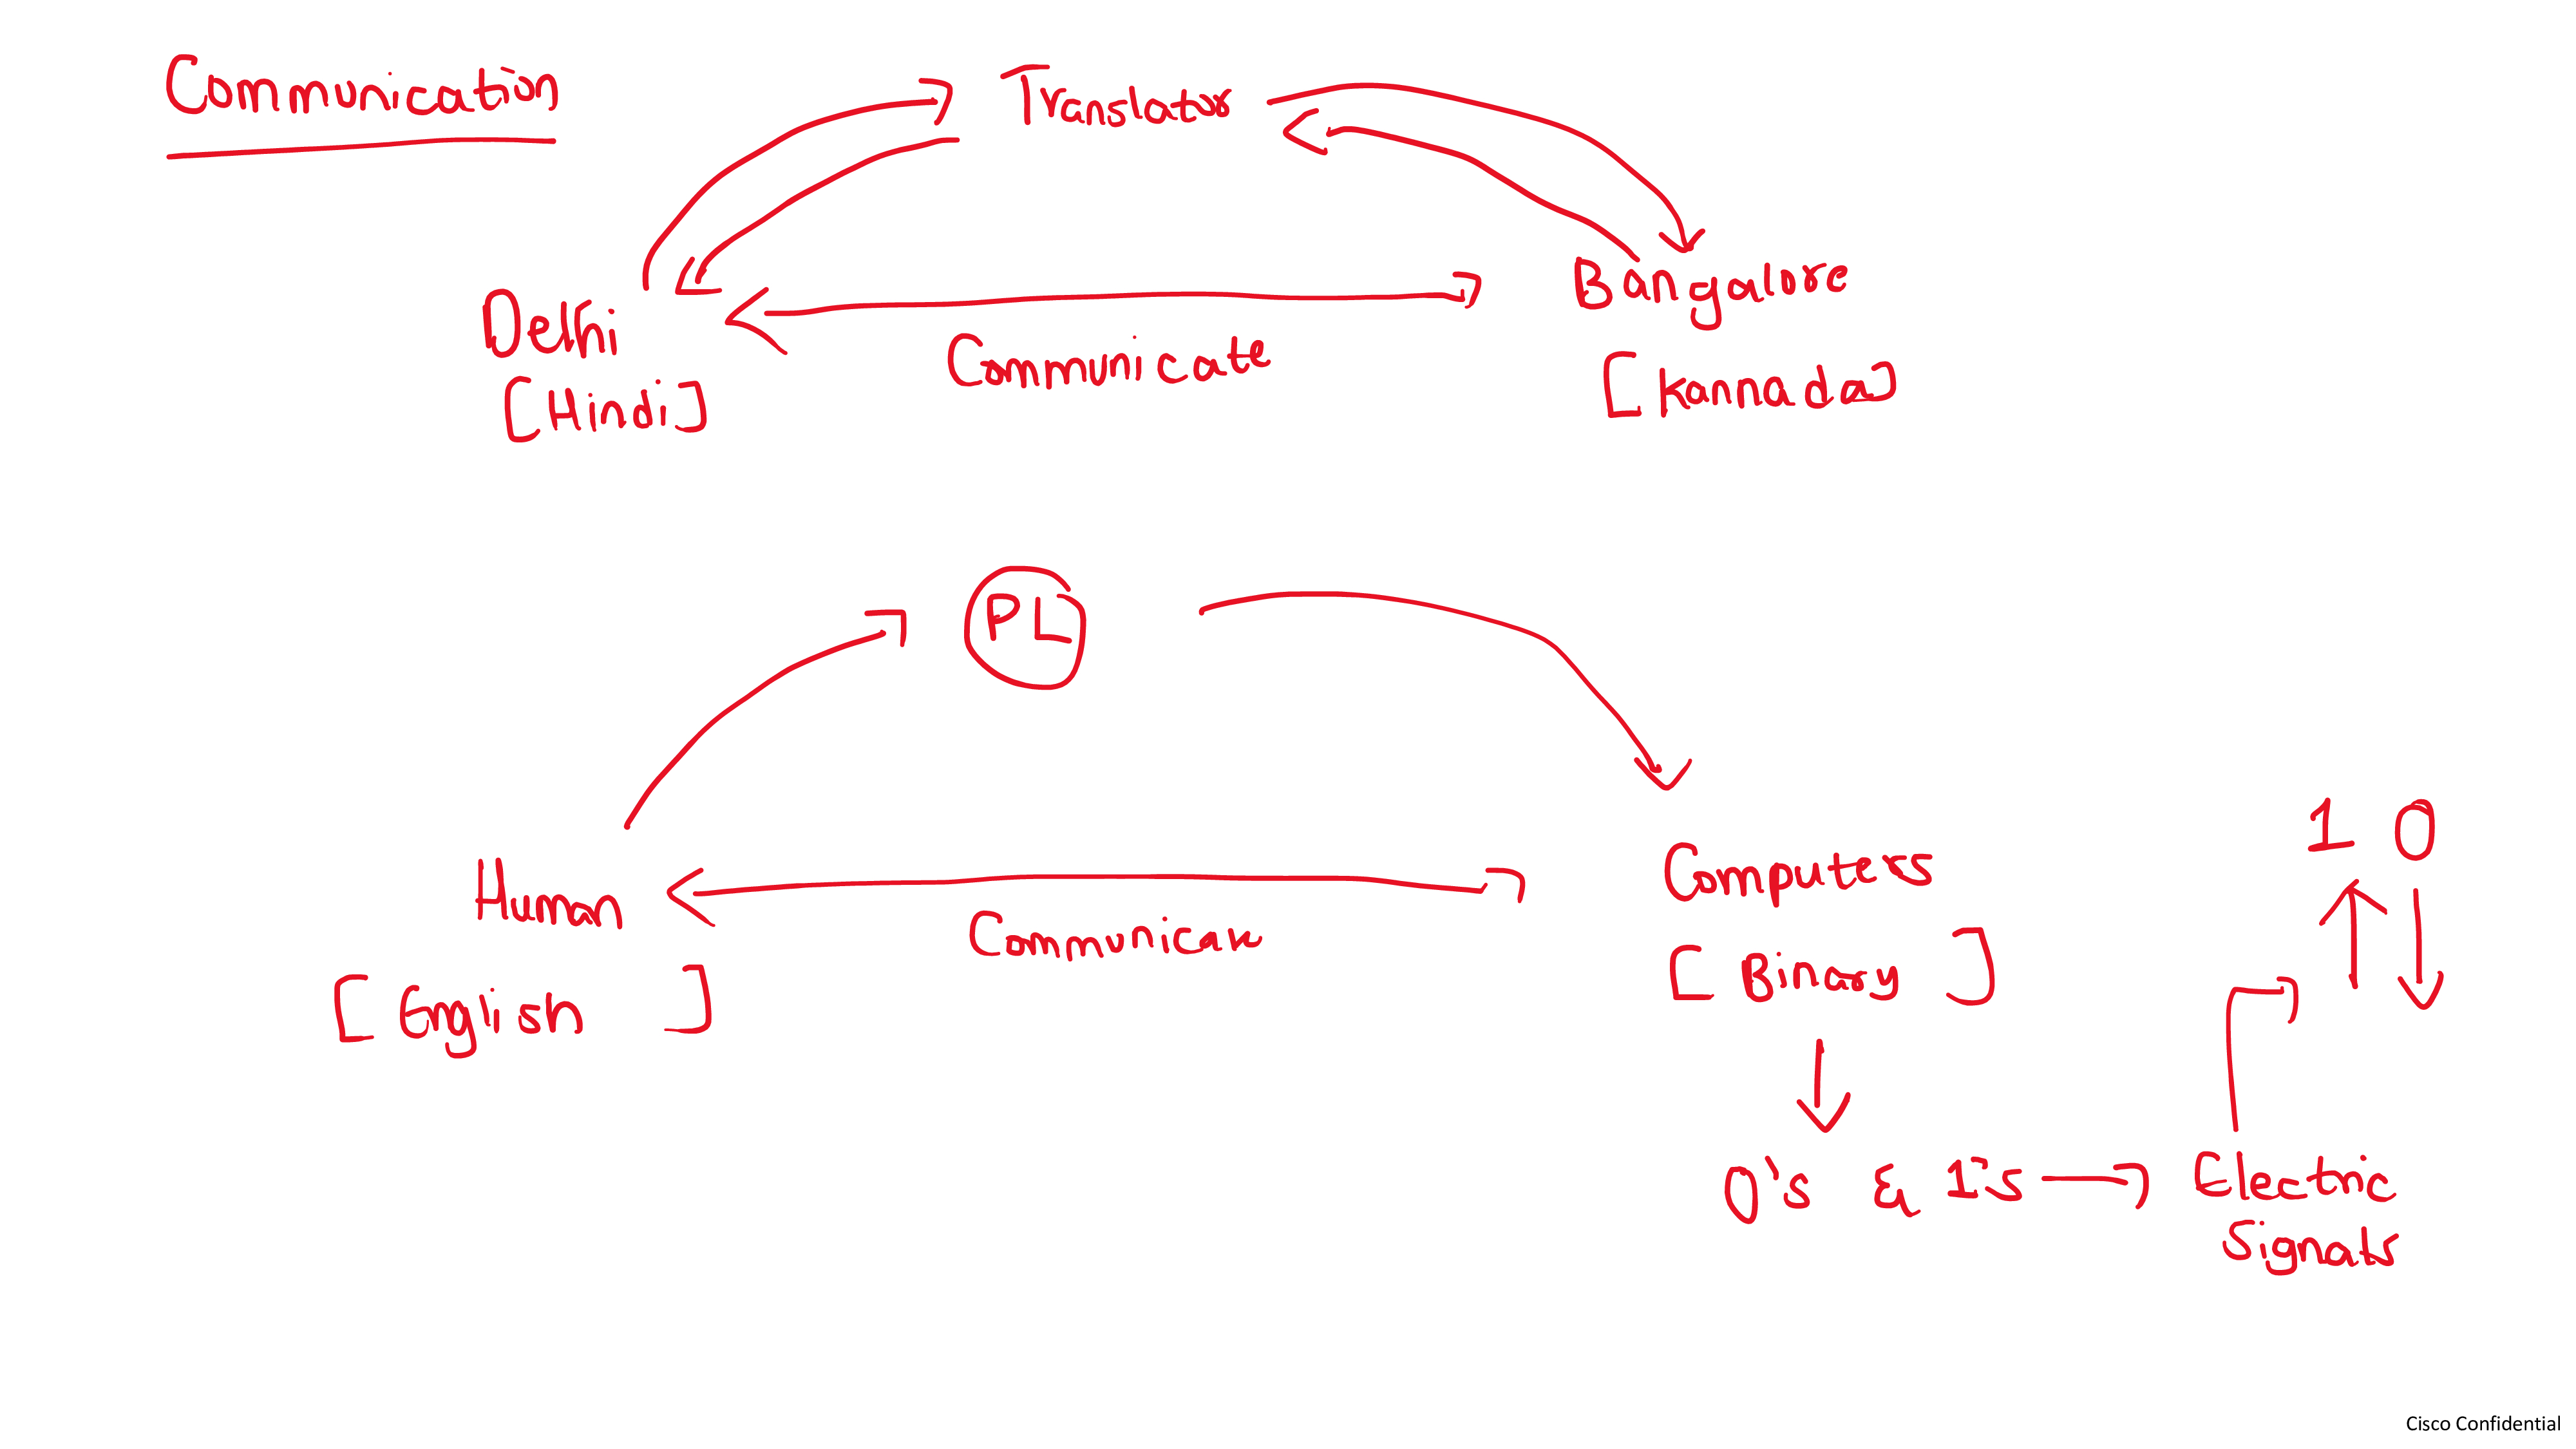 Communication
Translator
Delhi
[Hindi]
Communicate
Bangalore
[Kannada]
PL
Human
[English]
Communicate
Computers
[Binary]
0's & 1's
Electric
Signals
1 0
Cisco Confidential